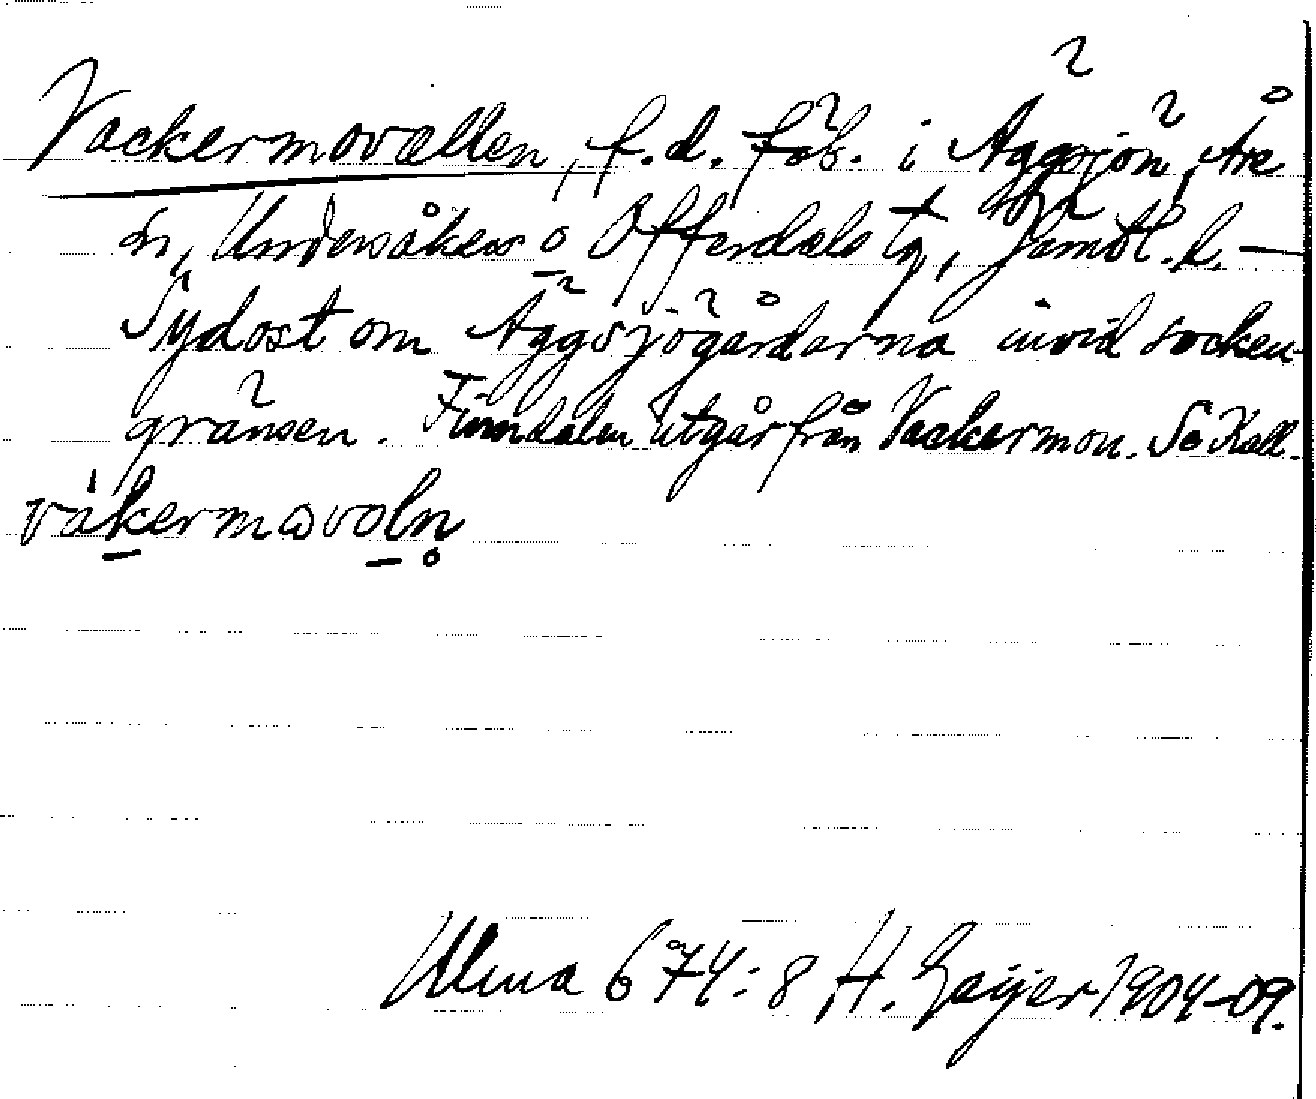 Vackermovallen, f.d. fäb. i Äggsjön, Åre
sn, Undersåkers o Offerdals tg, Jämtl. l. —
Sydost om Äggsjögårdarna invid socken-
gränsen. Finndalen utgår från Vackermon. Se Kall.
våkermωvoln̥
Ulma 674:8, H. Geijer 1904-09.